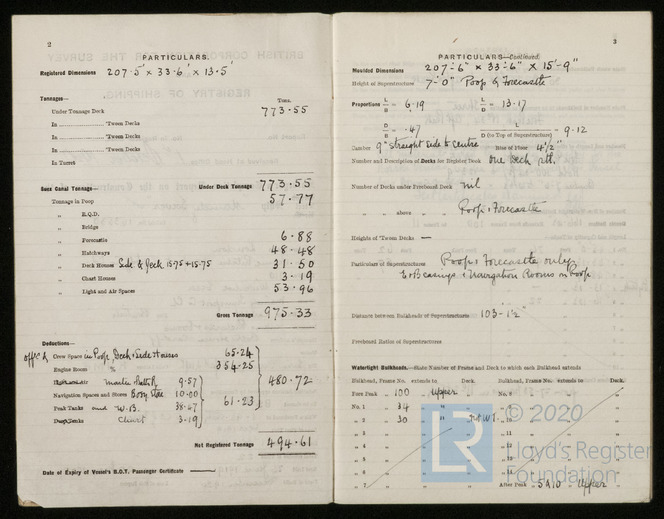 2
PARTICULARS.
Registered Dimensions 207·5' x 33·6' x 13·5'
Tonnages—
Tons.
Under Tonnage Deck 773·55
In 'Tween Decks
In 'Tween Decks
In 'Tween Decks
In Turret
Suez Canal Tonnage— Under Deck Tonnage 773·55
Tonnage in Poop 57·77
„ R.Q.D.
„ Bridge
„ Forecastle 6·88
„ Hatchways 48·48
„ Deck Houses Side & Deck 15·75+15·75 31·50
„ Chart Houses 3·19
„ Light and Air Spaces 53·96
Gross Tonnage 975·33
Deductions—
Crew Space in Poop, Deck & Side Houses 65·24
Engine Room % 354·25
Master 9·57
480·72
Navigation Spaces and Stores Bosn Store 10·00
61·23
Peak Tanks and W.B. 38·47
Chart 3·19
Net Registered Tonnage 494·61
Date of Expiry of Vessel's B.O.T. Passenger Certificate —
3
PARTICULARS—Continued.
Moulded Dimensions 207'-6" x 33'-6" x 15'-9"
Height of Superstructures 7'-0" Poop & Forecastle
Proportions L/B = 6·19 L/D = 13·17
D/B = ·47 L/D (to Top of Superstructure) = 9·12
Camber 9" straight side to centre Rise of Floor 4½"
Number and Description of Decks for Register Book One Deck
Number of Decks under Freeboard Deck nil
„ „ above „ Poop & Forecastle
Heights of 'Tween Decks —
Particulars of Superstructures Poop & Forecastle only
E & B casings & Navigation Rooms on Poop
Distance between Bulkheads of Superstructures 103-1½"
Freeboard Ratios of Superstructures
Watertight Bulkheads.—State Number of Frame and Deck to which each Bulkhead extends
Bulkhead, Frame No. extends to Deck. Bulkhead, Frame No. extends to Deck.
Fore Peak „ 100 „ Upper No. 8
No. 1 „ 34 „ „ 9
„ 2 „ 30 „ „ 10
„ 3 „ 11
„ 4 „ 12
„ 5
„ 6
„ 7 After Peak „ 5&10 „ Upper
LR © 2020
Lloyd's Register
Foundation